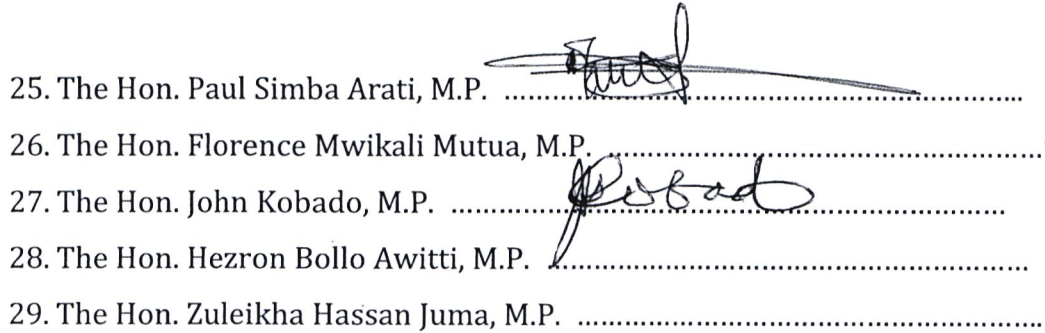 25. The Hon. Paul Simba Arati, M.P. ..........................................................
26. The Hon. Florence Mwikali Mutua, M.P. ..........................................................
27. The Hon. John Kobado, M.P. ..........................................................
Kobado
28. The Hon. Hezron Bollo Awitti, M.P. ..........................................................
29. The Hon. Zuleikha Hassan Juma, M.P. ..........................................................